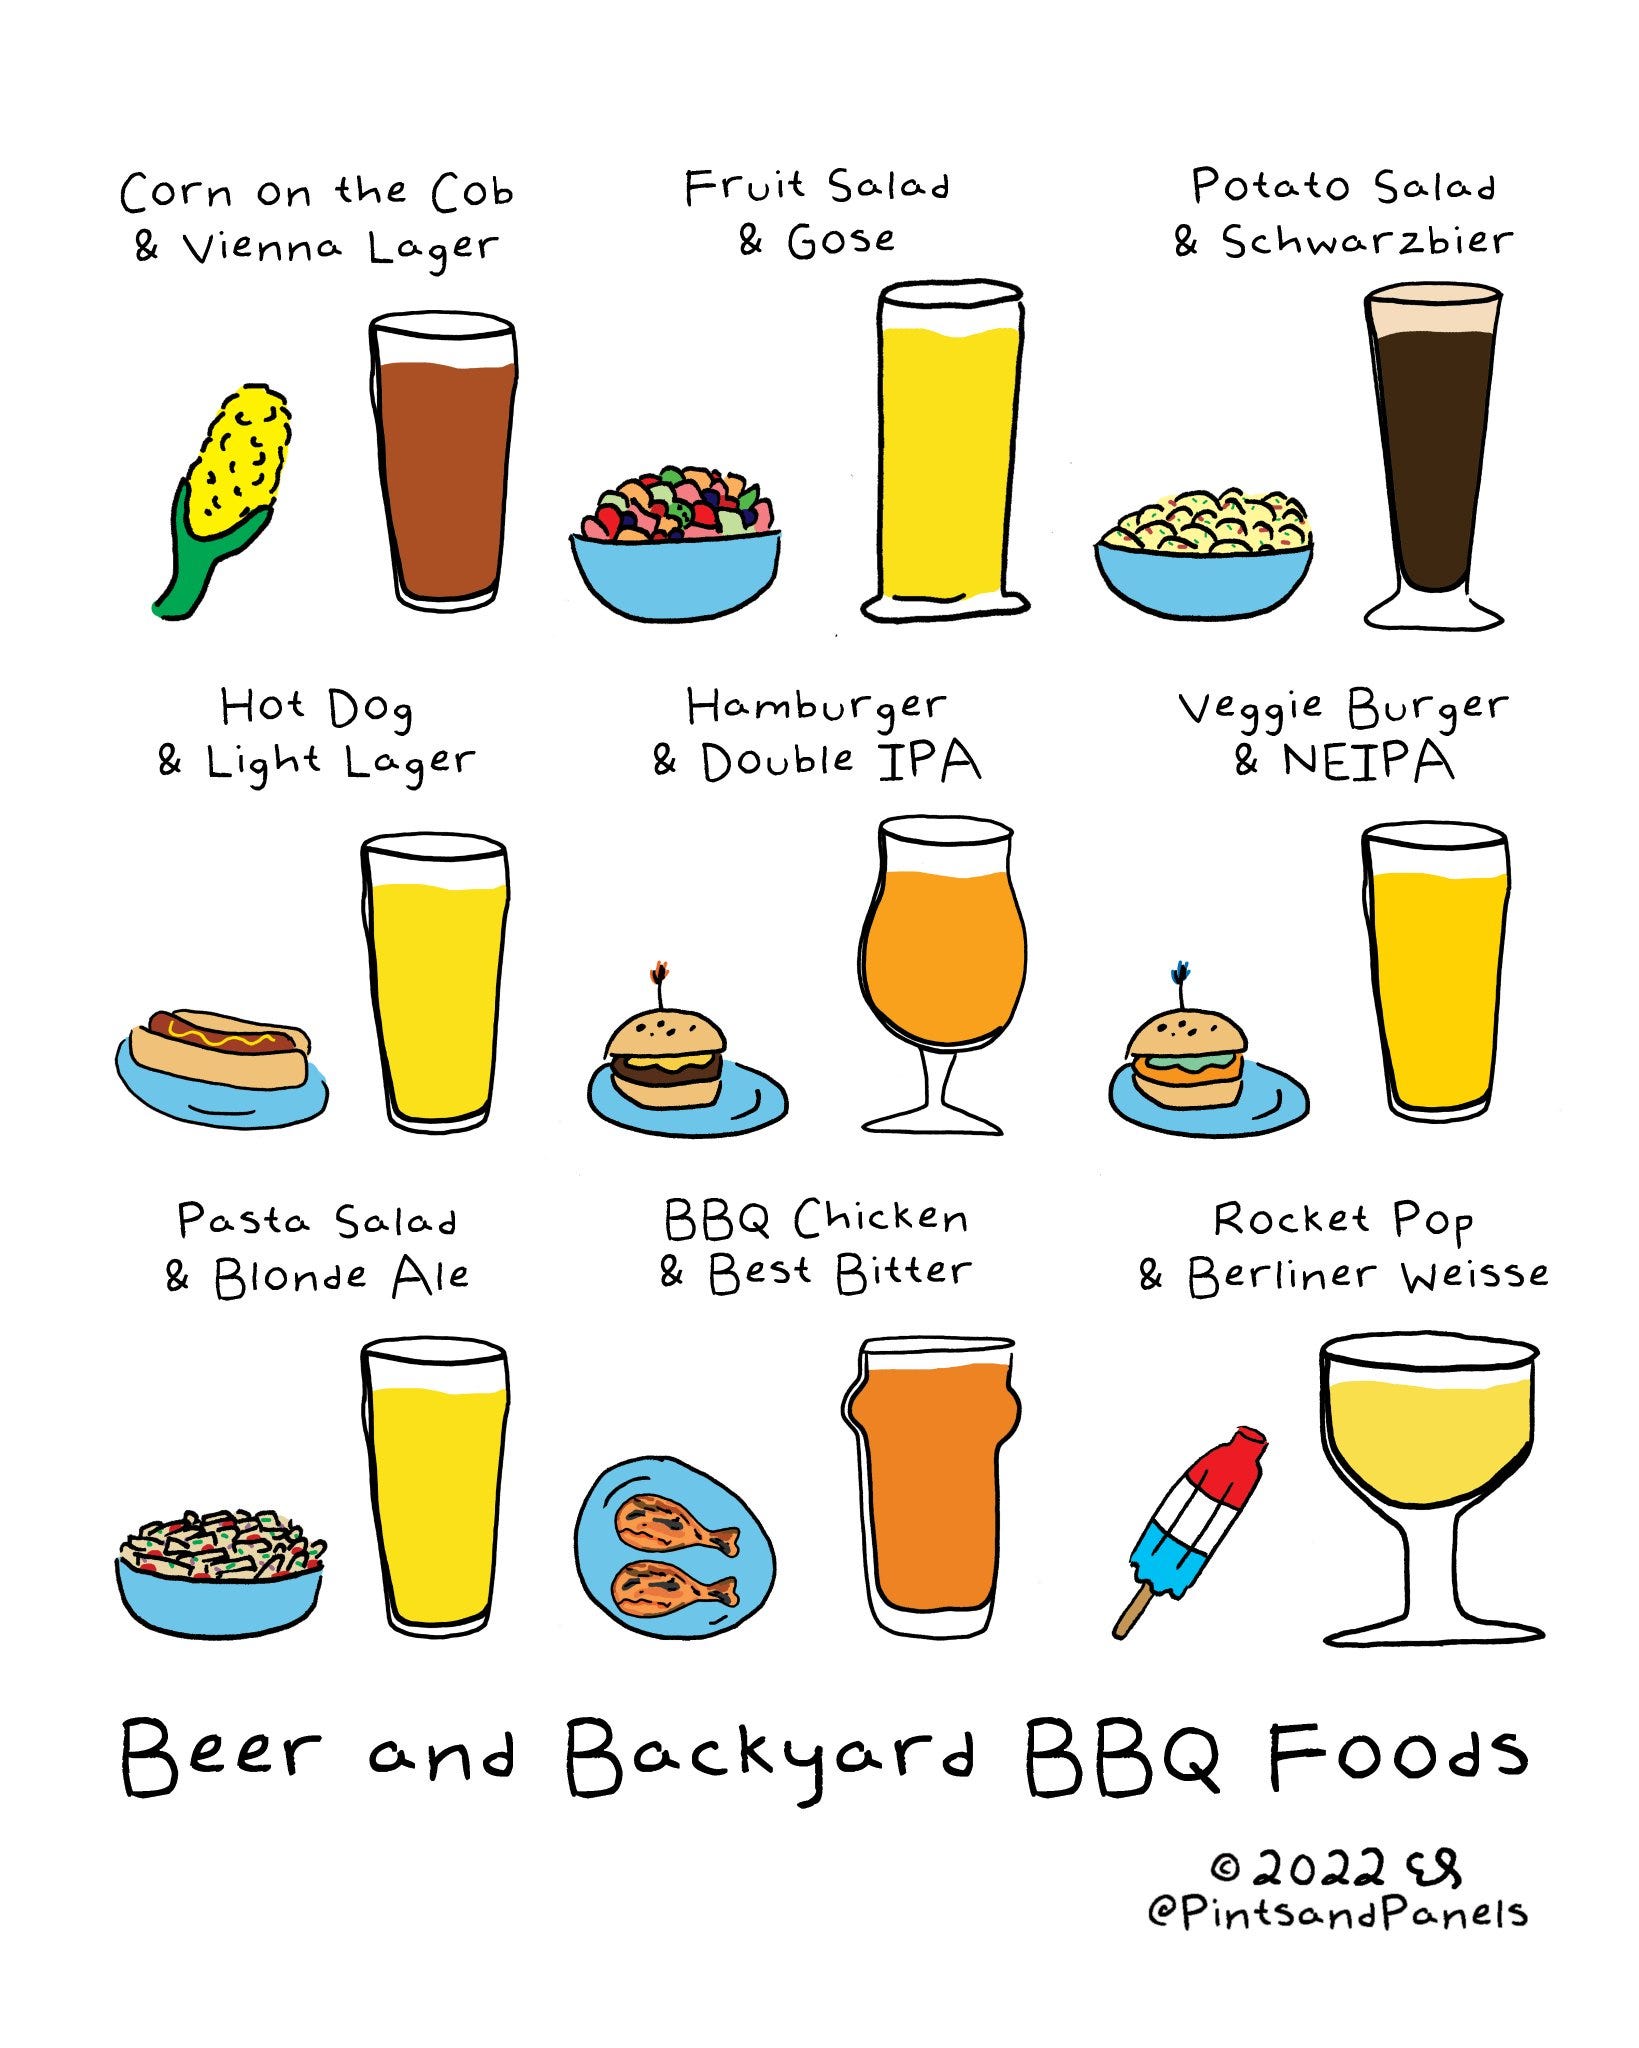 Corn on the Cob
& Vienna Lager
Fruit Salad
& Gose
Potato Salad
& Schwarzbier
Hot Dog
& Light Lager
Hamburger
& Double IPA
Veggie Burger
& NEIPA
Pasta Salad
& Blonde Ale
BBQ Chicken
& Best Bitter
Rocket Pop
& Berliner Weisse
Beer and Backyard BBQ Foods
© 2022
@PintsandPanels